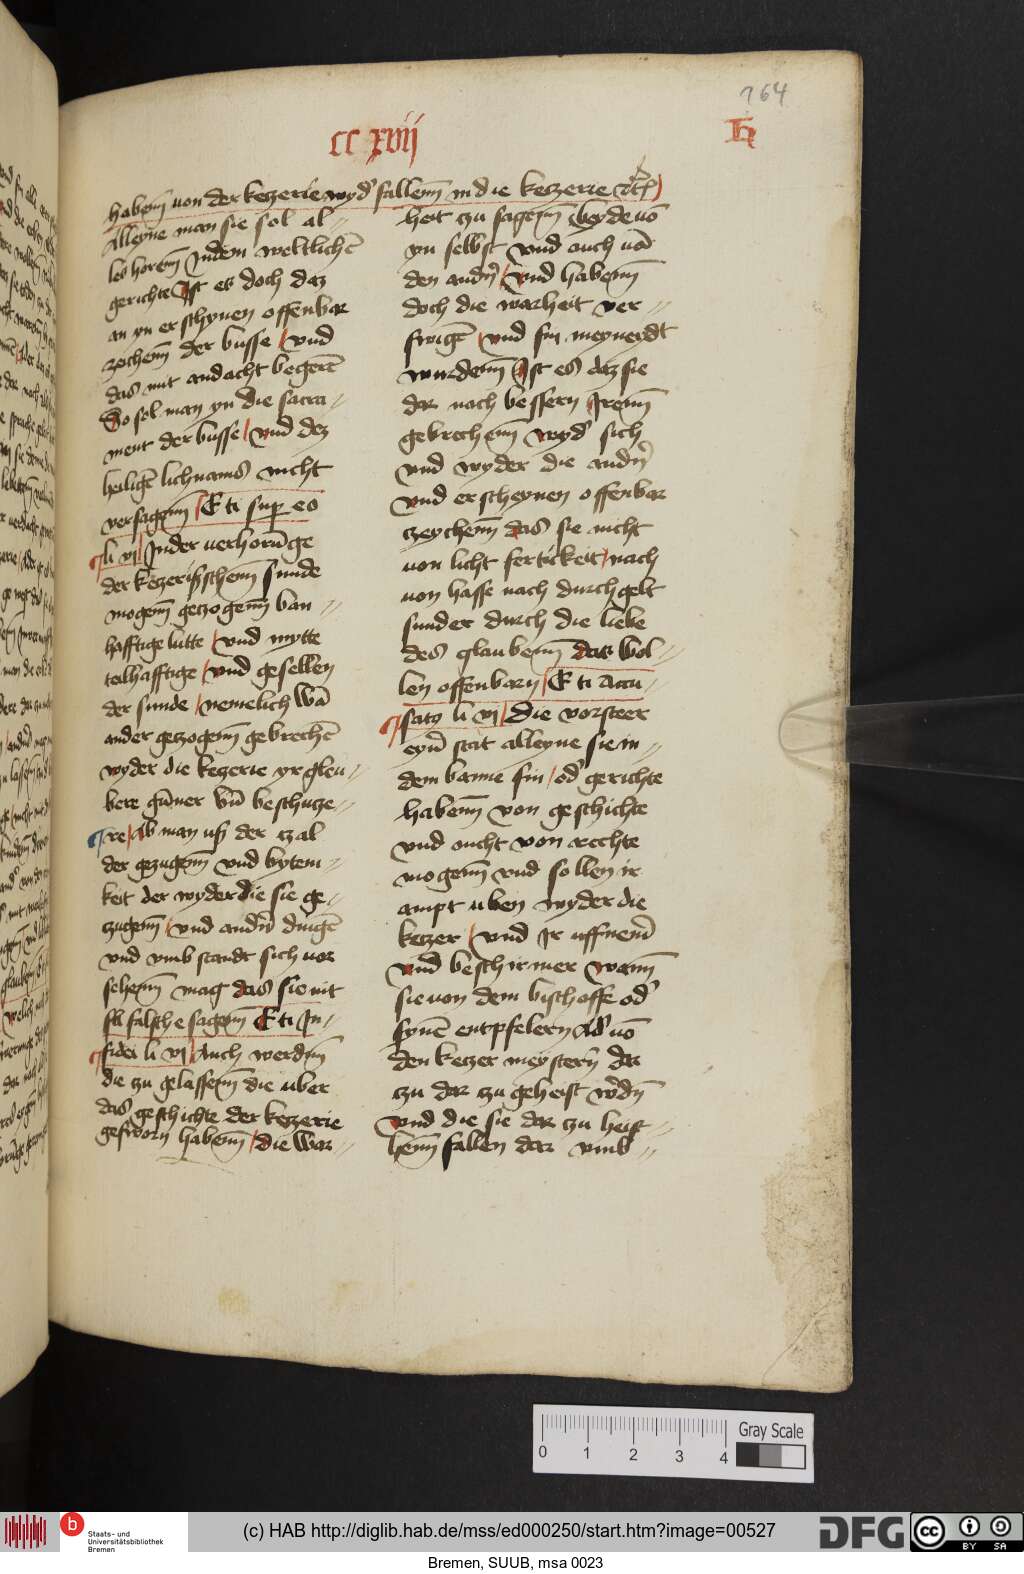 264
cc xvij
habenn von der ketzerie wyd' fallenn in die ketzerie
Alleyne man sie sol al-
les horenn Jndem weltlichē
gerichte Jst es doch daz
an yn erschynen offenbar
zeichenn der busse / vnd
das mit andacht begerē
So sol man yn die sacra-
ment der busse / vnd dez
heiligē lichnams nicht
versagenn / Eti sup eo
li vj / Jnder verhorūge
der ketzerischenn sunde
mogenn getzogenn ban-
hafftige lutte / vnd mytte
teilhafftige / vnd gesellen
der sunde / nemelich wā
ander getzogenn gebrechē
wyder die ketzerie yr gleu-
bere gūner vn̄ beschutze-
re / Ab man uß der tzal
der getzugenn vnd bytem-
keit der wyder die sie ge-
tzugenn / vnd andn̄ dingē
vnd vmb standt sich vor
sehenn mag das sie nit
falsche sagenn Eti Jn-
fidei li vj / Auch werdenn
die zu gelassenn die uber
das geschichte der ketzerie
gesworn habenn / die war-
heit tzu sagenn beyde vō
yn selbst vnd auch vō
den andn̄ / vnd habenn
doch die warheit ver-
swigē / vnd sin meyneydt
wurdenn Jst es daz sie
dar nach bessern Jrenn
gebrechenn wyd' sich
vnd wyder die andn̄
vnd erscheynen offenbar
tzeychenn das sie nicht
von licht fertickeit / nach
von hasse nach durch gelt
sunder durch die liebe
des glaubenn das wol-
len offenbarn / Eti accu-
satꝯ li vj / Die vorsteer
eyn̄ stat alleyne sie in-
dem banne sin / od' gerichte
habenn von geschichte
vnd nicht von rechte
mogenn vnd sollen ir
ampt uben wyder die
ketzer / vnd Jr uffnem̄
vnd beschirmer wann
sie von dem bischoffe od'
synē entpfelern Ad' vō
den ketzer meystern̄ dar
tzu dar tzu geheist w'dn̄
vnd die sie dar tzu heist-
henn sallen dar vmb-
0 1 2 3 4
Gray Scale
b
Staats- und
Universitätsbibliothek
Bremen
(c) HAB http://diglib.hab.de/mss/ed000250/start.htm?image=00527
DFG
cc BY SA
Bremen, SUUB, msa 0023